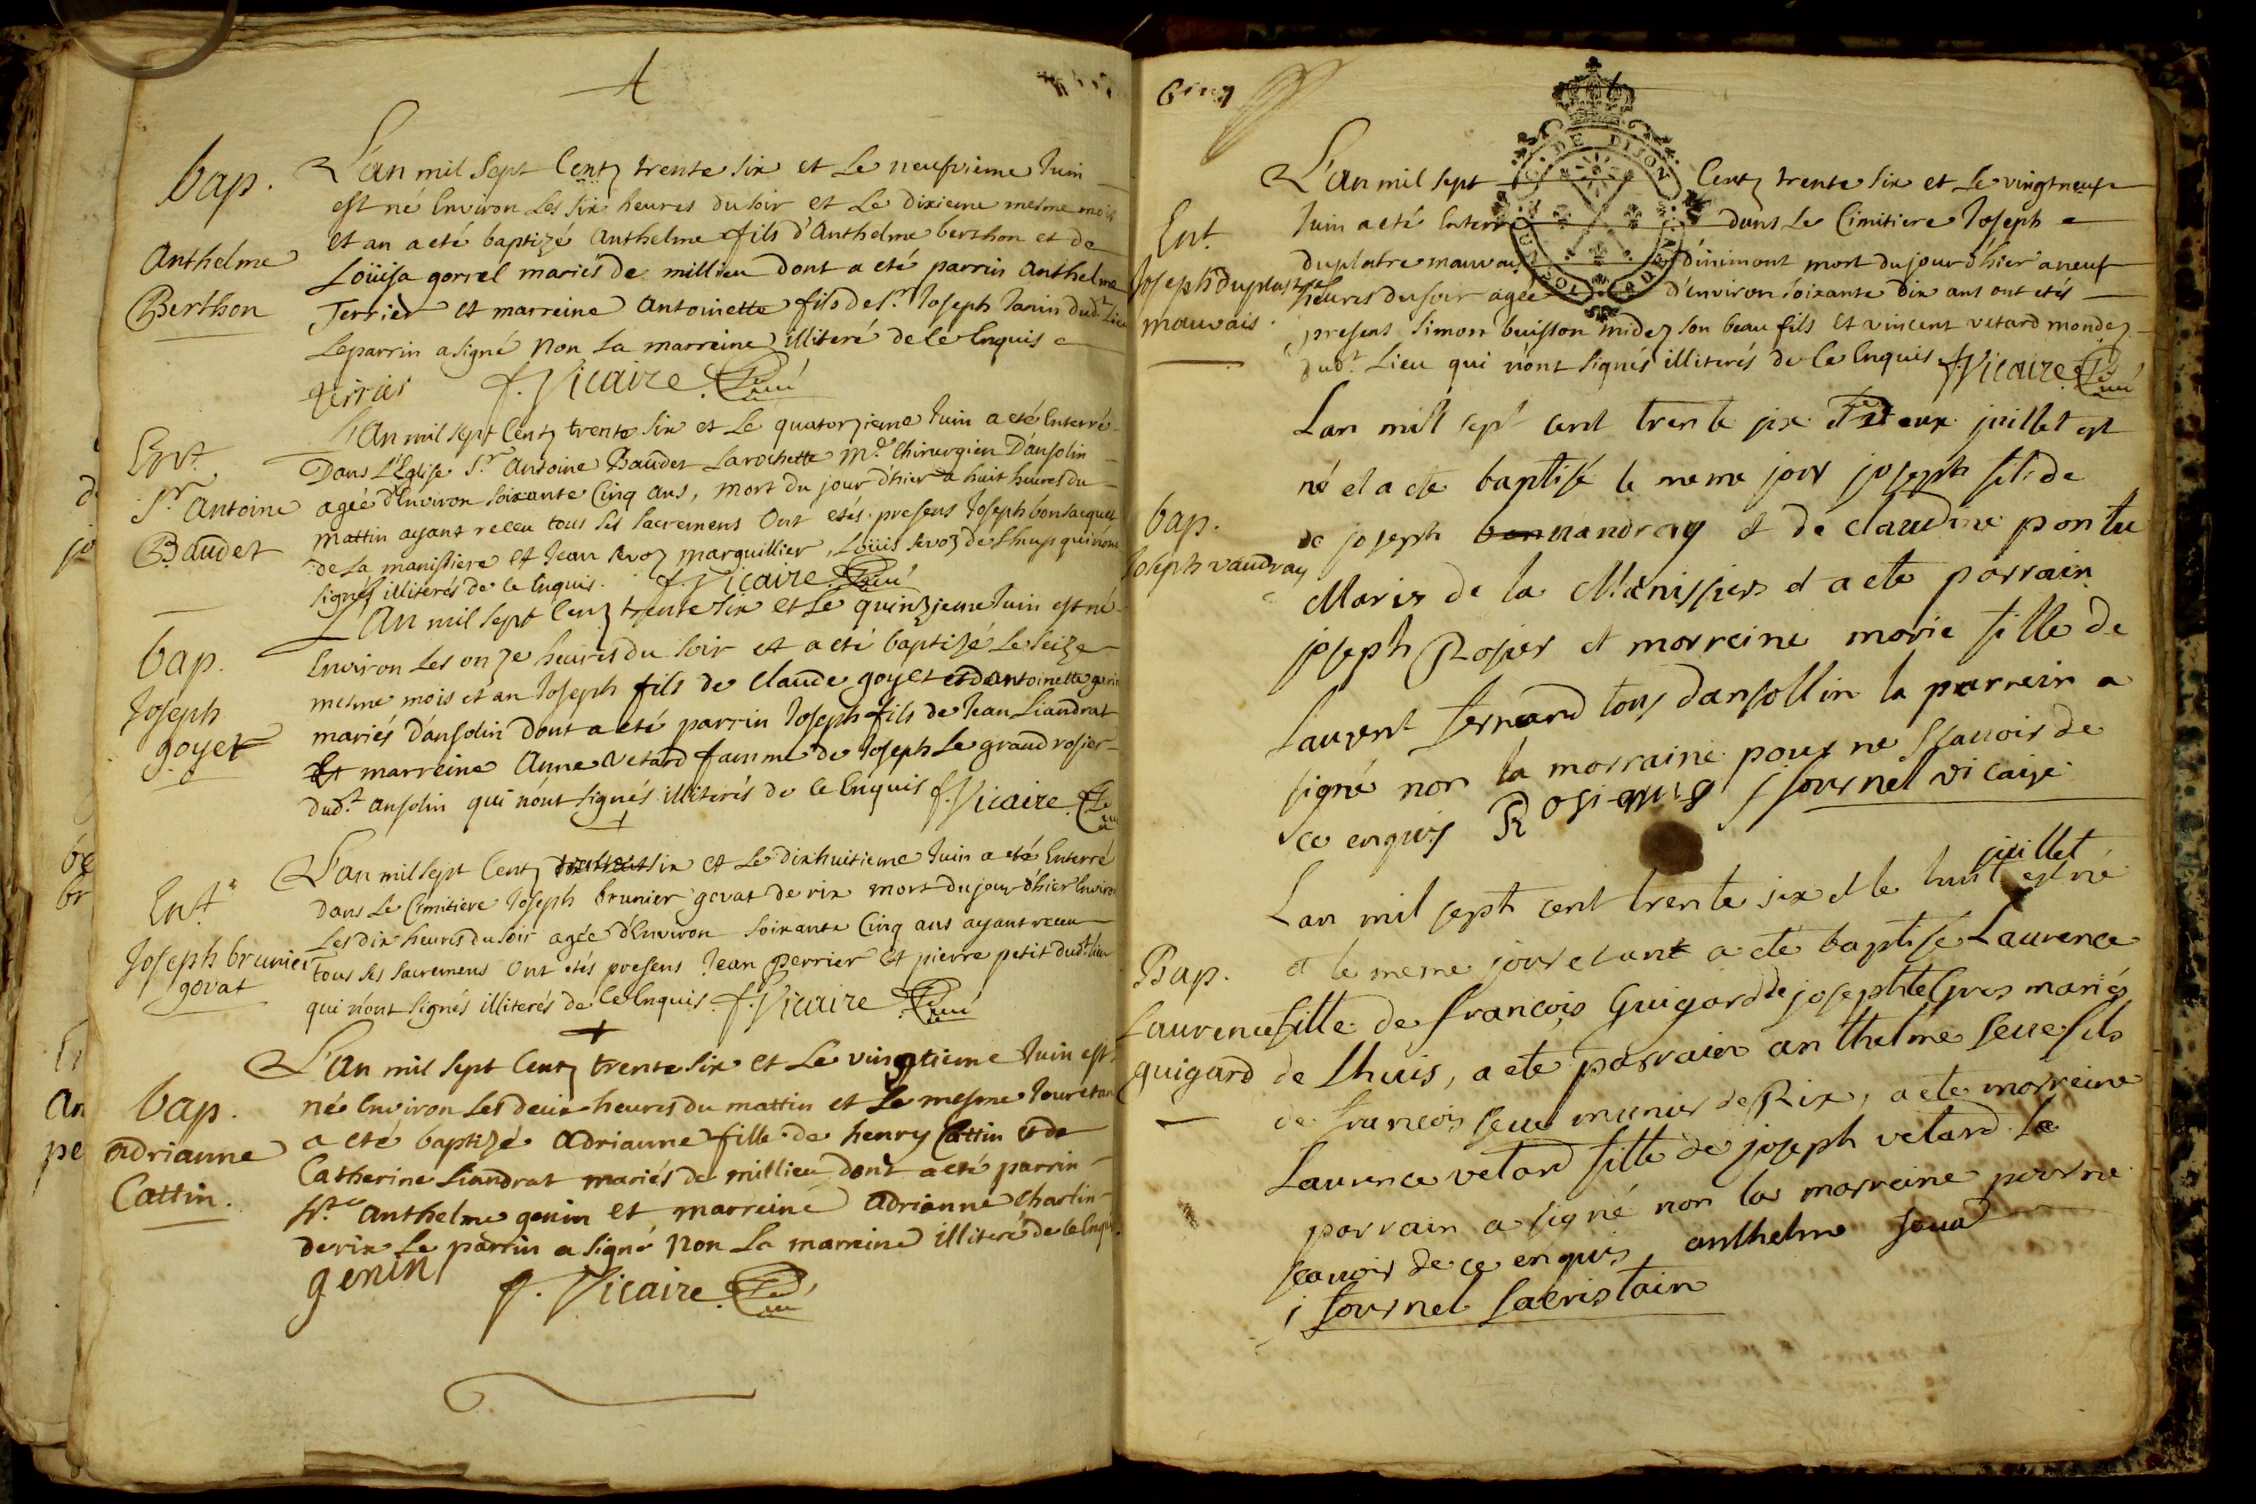 4
bap.
Anthelme
Berthon
L'an mil sept Cent trente six et Le neufvieme Juin
est né Environ Les six heures du soir et Le dixieme mesme mois
et an a eté baptizé Anthelme fils d'Anthelme berthon et de
Loüisa gorrel mariés de millieu dont a eté parrin Anthelme
Terrier et marreine Antoinette fils de Sr Joseph Janin dud.t Lieu
Le parrin a signé non La marreine illiteré de ce Enquis
terrier f. Vicaire Curé
Ent.
Sr Antoine
Baudet
L'An mil sept Cent trente six et Le quatorzieme Juin a eté Enterré
Dans L'Eglise Sr Antoine Baudet Larochette M.e Chirurgien D'ansolin
agée d'Environ soixante Cinq ans, mort du jour d'hier a huit heures du
mattin ayant receu tous ses sacremens Ont etés presens Joseph bonjacquet
de La manissiere et Jean revoz marguillier, Loüis revoz de Lhuys qui n'ont
signés illiterés de ce Enquis. f. Vicaire Curé
bap.
Joseph
goyet
L'An mil sept Cent trente six et Le quinzieme Juin est né
Environ Les onze heures du soir et a eté baptizé Le seize
mesme mois et an Joseph fils de Claude goyet et d'antoinette genin
mariés d'ansolin dont a eté parrin Joseph fils de Jean Liandrat
et marreine Anne vetard famme de Joseph Le grand rosier
dud.t ansolin qui n'ont signés illiterés de ce Enquis f. Vicaire Curé
Ent.
Joseph brunier
govat
L'an mil sept Cent six et Le dixhuitieme Juin a eté Enterré
dans Le Cimitiere Joseph brunier govat de rix mort du jour d'hier Environ
Les dix heures du soir agée d'Environ soixante Cinq ans ayant receu
tous ses sacremens Ont etés presens Jean perrier et pierre petit dud.t lieu
qui n'ont signés illiterés de ce Enquis f. Vicaire Curé
bap.
adrianne
Cattin.
L'An mil sept Cent trente six et Le vingtieme Juin est
né Environ Les deux heures du mattin et Le mesme Jour et an
a eté baptizé adrianne fille de henry Cattin et de
Catherine Liandrat mariés de millieu dont a eté parrin
anthelme genin et marreine adrianne charlin
de rix Le parrin a signé non La marreine illiteré de ce Enquis
genin f. Vicaire Curé
Cinq
DE DIJON
Ent.
Joseph duplastre
mauvais.
L'an mil sept Cent trente six et Le vingtneuf
Juin a eté Enterré dans Le Cimitiere Joseph
duplatre mauvais d'inimont mort du jour d'hier a neuf
heures du soir agée d'environ soixante dix ans ont etés
presens Simon buisson midez son beau fils et vincent vetard mondez
dud.t Lieu qui n'ont signés illiterés de ce Enquis f. Vicaire Curé
bap.
Joseph vaudray
Lan mil sept cent trente six et le deux juillet est
né et a ete baptisé le meme jour joseph fils de
de joseph vandray et de claudine pontu
Maries de la Manissiere et a ete parrain
joseph Rosier et morreine marie fille de
Laurent fernand tous dansollin la parrein a
signé non la morraine pour ne scavoir de
ce enquis Rosier f fournel vicaire
Bap.
Laurence
guigard
Lan mil sept cent trente six et le huit juillet est né
et le meme jour et ant a ete baptisé Laurence
fille de francois Guigard de josephte Gros mariés
de Lhuis, a ete parrain anthelme seue fils
de francois seue munier de Rix, a ete morreine
Laurence vetard fille de joseph vetard le
parrain a signé non la marreine pour ne
scavoir de ce enquis, anthelme soua
j fournel sacristain